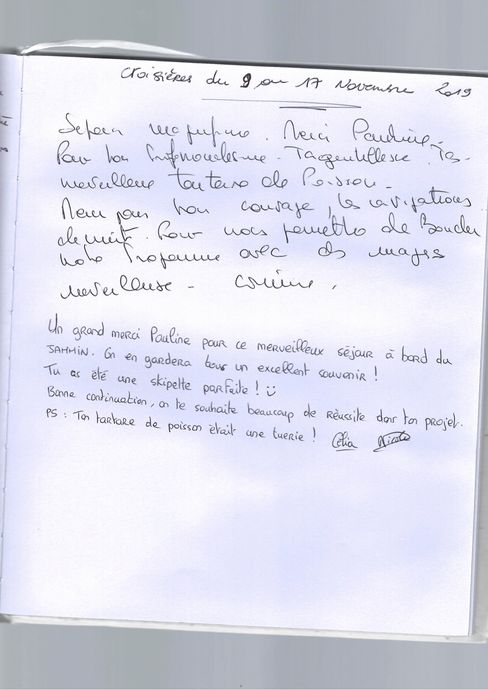 Croisières du 9 au 17 Novembre 2019
Séjour magnifique. Merci Pauline.
Pour ton Gentillesse. Tes
merveilleux tartare de Poisson.
Merci pour ton courage, les navigations
de nuit. Pour nous permettre de Boucler
notre Programme avec des images
merveilleuse.
Un grand merci Pauline pour ce merveilleux séjour à bord du
JAHMIN. On en gardera tous un excellent souvenir !
Tu as été une skipette parfaite !
Bonne continuation, on te souhaite beaucoup de réussite dans ton projet.
PS : Ton tartare de poisson était une tuerie ! Célia Nicolas